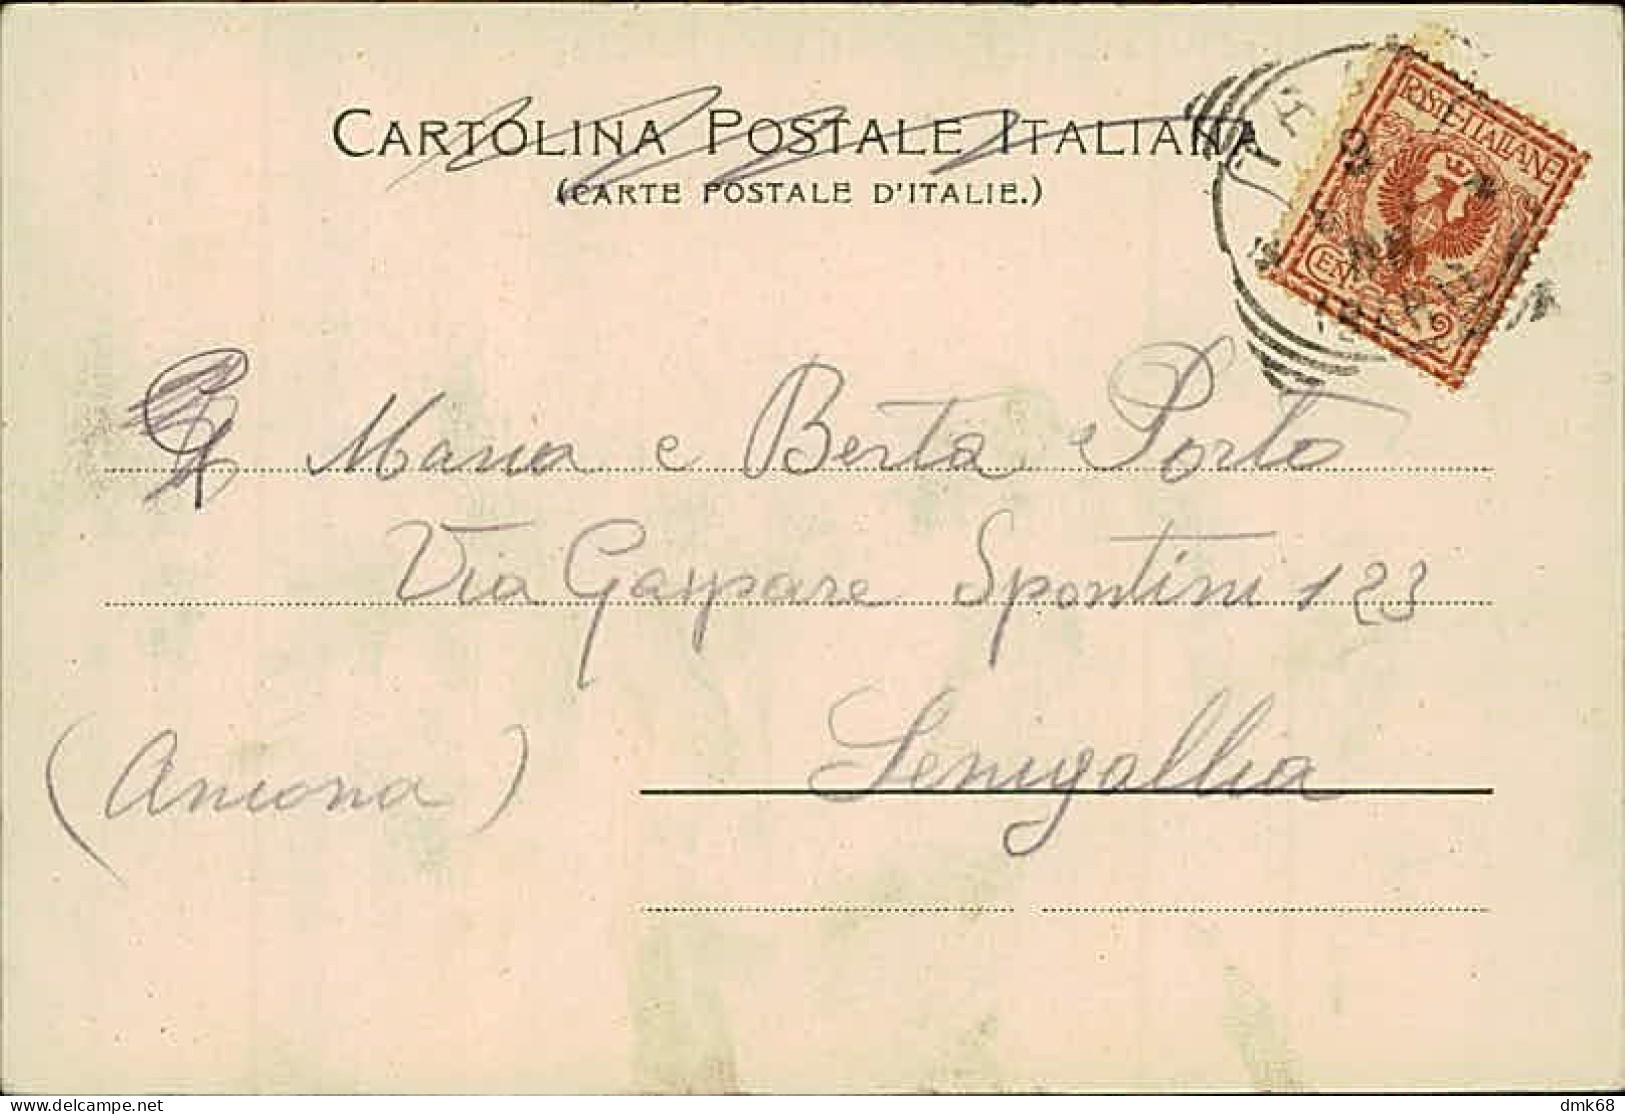 CARTOLINA POSTALE ITALIANA
(CARTE POSTALE D'ITALIE.)
POSTE ITALIANE
CENT 2
Maria e Berta Porto
Via Gaspare Spontini 123
Senigallia
(Ancona)
delcampe.net
dmk68